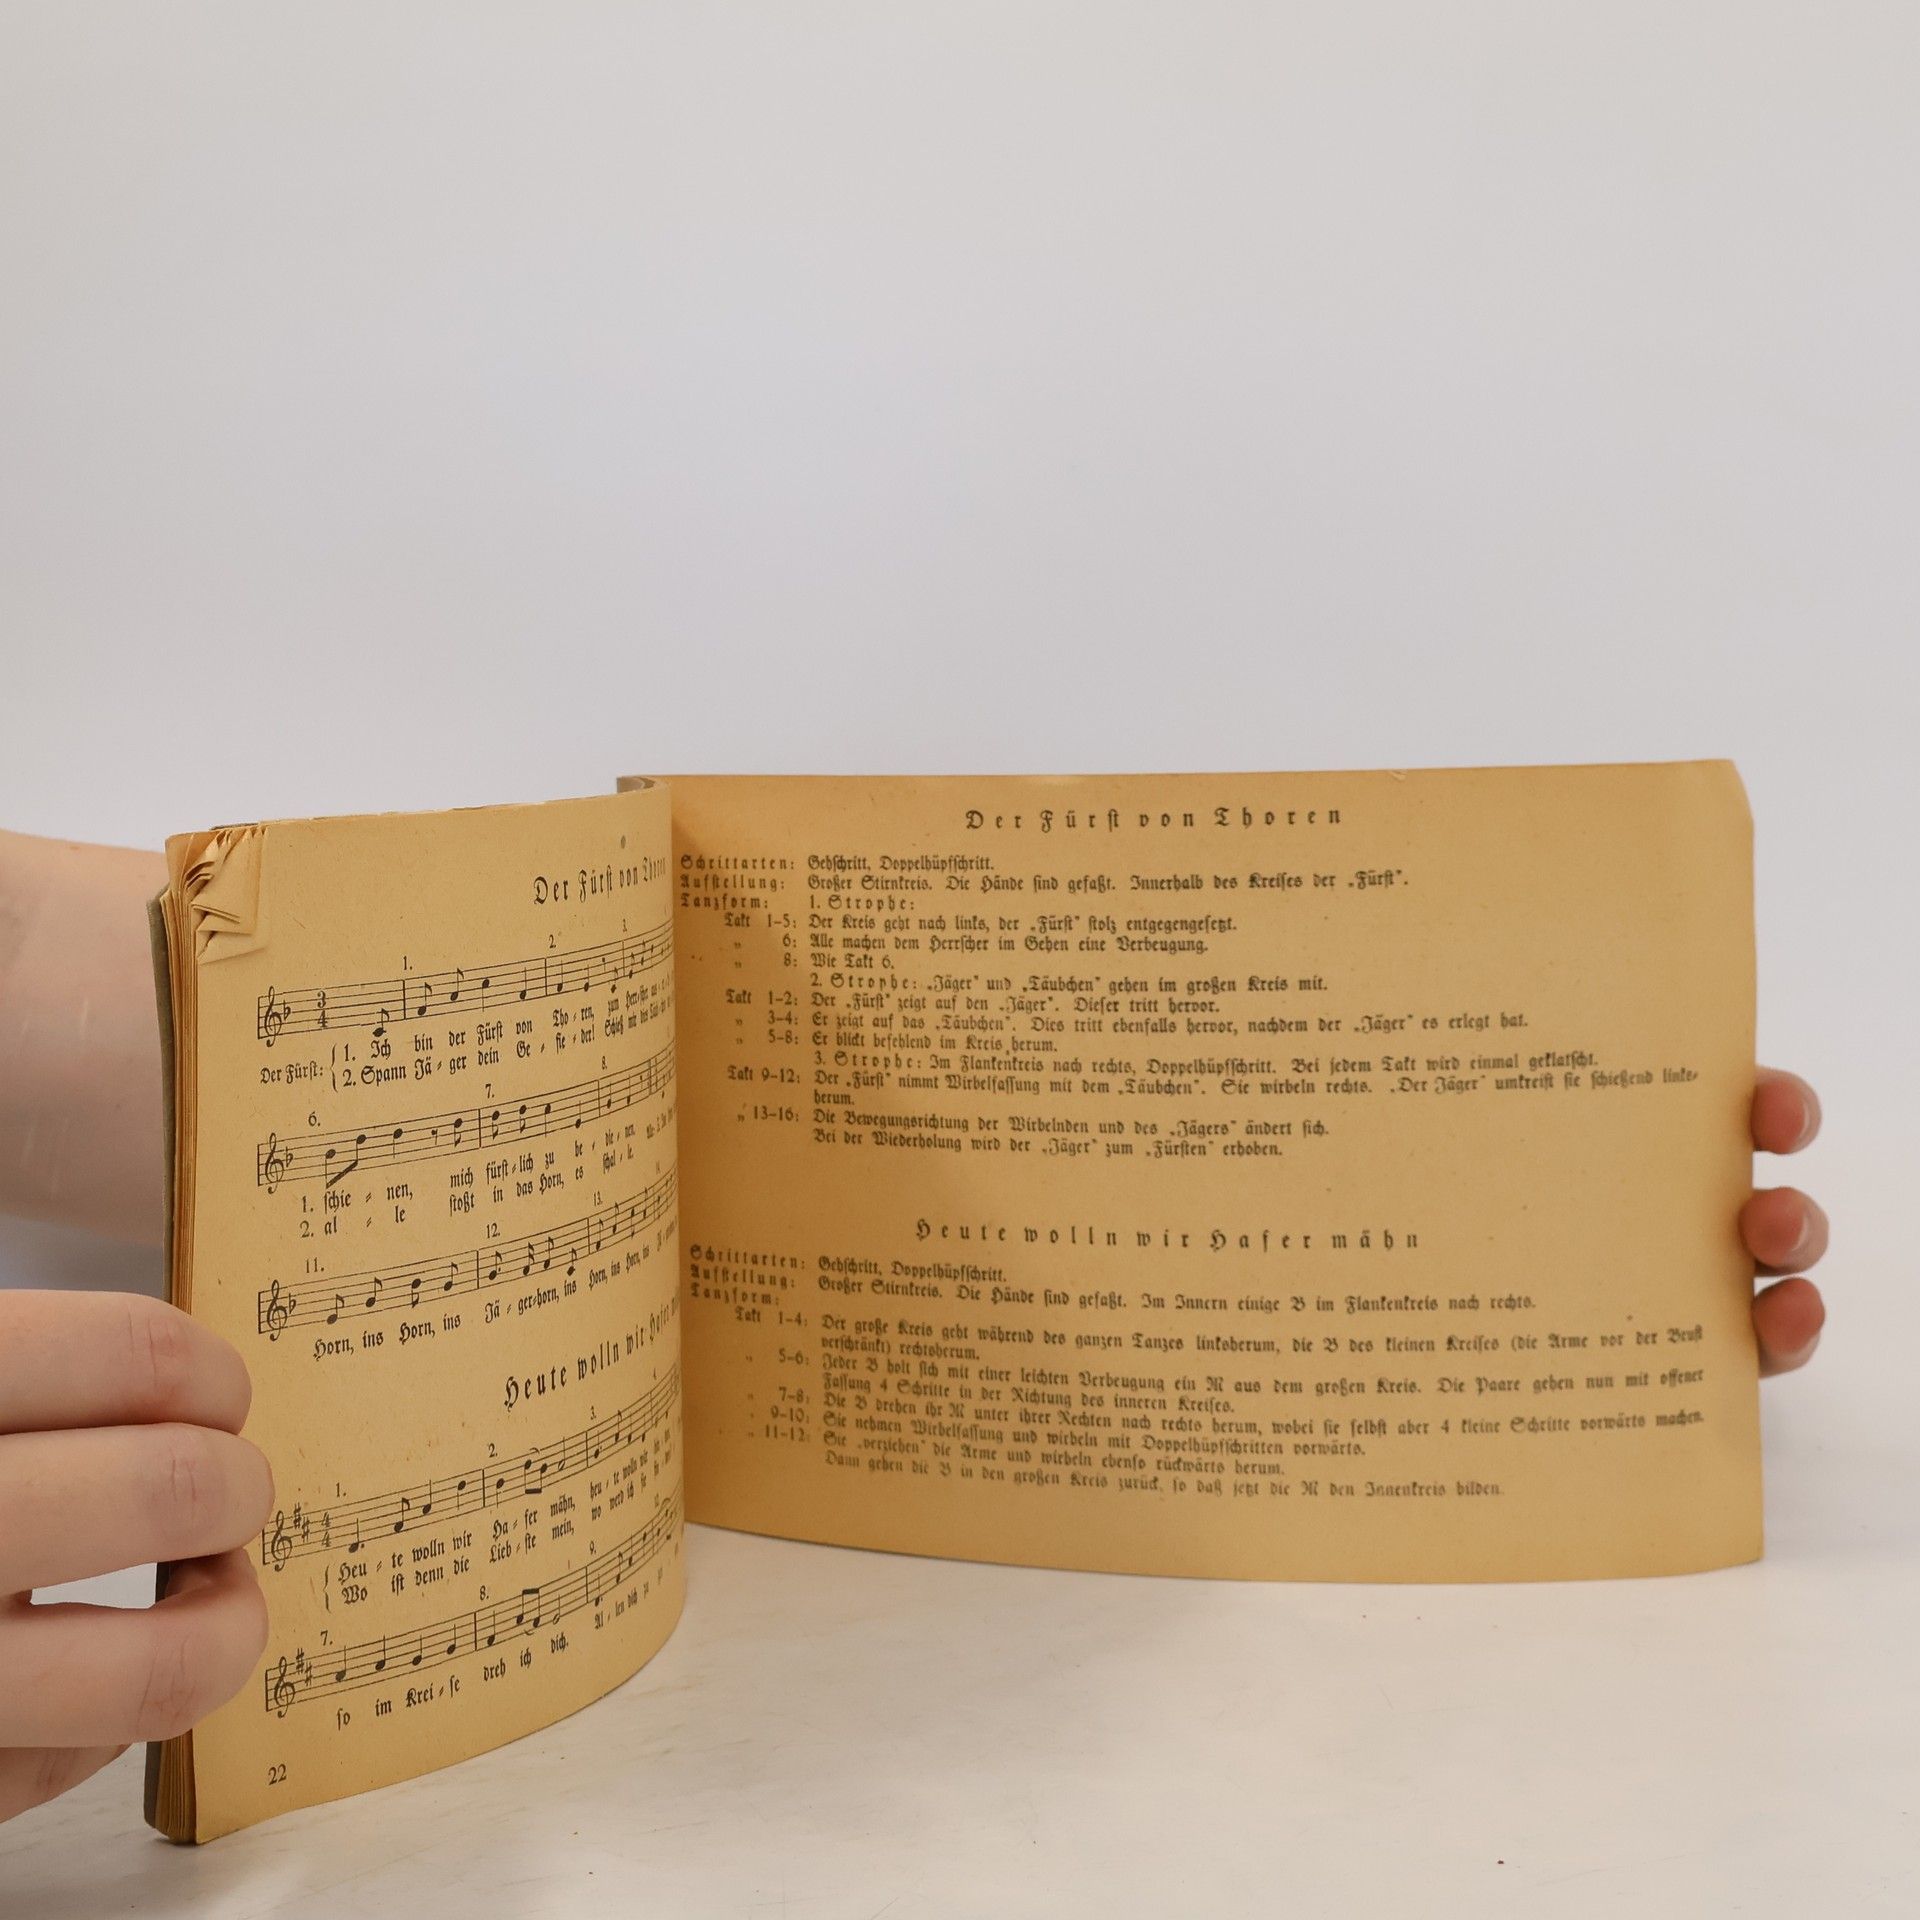 Der Fürst von Thoren
1. 2. 3.
3 4
Der Fürst: 1. Ich bin der Fürst von Tho - ren, zum
2. Spann Jä - ger dein Ge - fie - der! Schieß mir das
6. 7. 8.
1. schie - nen, mich fürst - lich zu be - die - nen.
2. al - le stoßt in das Horn, es schal - le.
11. 12. 13.
Horn, ins Horn, ins Jä - ger-horn, ins Horn, ins Horn, ins
Heute wolln wir Hafer
1. 2. 3. 4.
4 4
Heu - te wolln wir Ha - fer mähn, heu - te wolln wir
Wo ist denn die Lieb - ste mein, wo werd ich sie
7. 8. 9.
so im Krei - se dreh ich dich. Al - len dich
22
Der Fürst von Thoren
Schrittarten: Gehschritt, Doppelhüpfschritt.
Aufstellung: Großer Stirnkreis. Die Hände sind gefaßt. Innerhalb des Kreises der „Fürst".
Tanzform: 1. Strophe:
Takt 1–5: Der Kreis geht nach links, der „Fürst" stolz entgegengesetzt.
„ 6: Alle machen dem Herrscher im Gehen eine Verbeugung.
„ 8: Wie Takt 6.
2. Strophe: „Jäger" und „Täubchen" gehen im großen Kreis mit.
Takt 1–2: Der „Fürst" zeigt auf den „Jäger". Dieser tritt hervor.
„ 3–4: Er zeigt auf das „Täubchen". Dies tritt ebenfalls hervor, nachdem der „Jäger" es erlegt hat.
„ 5–8: Er blickt befehlend im Kreis herum.
3. Strophe: Im Flankenkreis nach rechts, Doppelhüpfschritt. Bei jedem Takt wird einmal geklatscht.
Takt 9–12: Der „Fürst" nimmt Wirbelfassung mit dem „Täubchen". Sie wirbeln rechts. „Der Jäger" umkreist sie schießend links-
herum.
„ 13–16: Die Bewegungsrichtung der Wirbelnden und des „Jägers" ändert sich.
Bei der Wiederholung wird der „Jäger" zum „Fürsten" erhoben.
Heute wolln wir Hafer mähn
Schrittarten: Gehschritt, Doppelhüpfschritt.
Aufstellung: Großer Stirnkreis. Die Hände sind gefaßt. Im Innern einige B im Flankenkreis nach rechts.
Tanzform:
Takt 1–4: Der große Kreis geht während des ganzen Tanzes linksherum, die B des kleinen Kreises (die Arme vor der Brust
verschränkt) rechtsherum.
„ 5–6: Jeder B holt sich mit einer leichten Verbeugung ein M aus dem großen Kreis. Die Paare gehen nun mit offener
Fassung 4 Schritte in der Richtung des inneren Kreises.
„ 7–8: Die B drehen ihr M unter ihrer Rechten nach rechts herum, wobei sie selbst aber 4 kleine Schritte vorwärts machen.
„ 9–10: Sie nehmen Wirbelfassung und wirbeln mit Doppelhüpfschritten vorwärts.
„ 11–12: Sie „verziehen" die Arme und wirbeln ebenso rückwärts herum.
Dann gehen die B in den großen Kreis zurück, so daß jetzt die M den Innenkreis bilden.